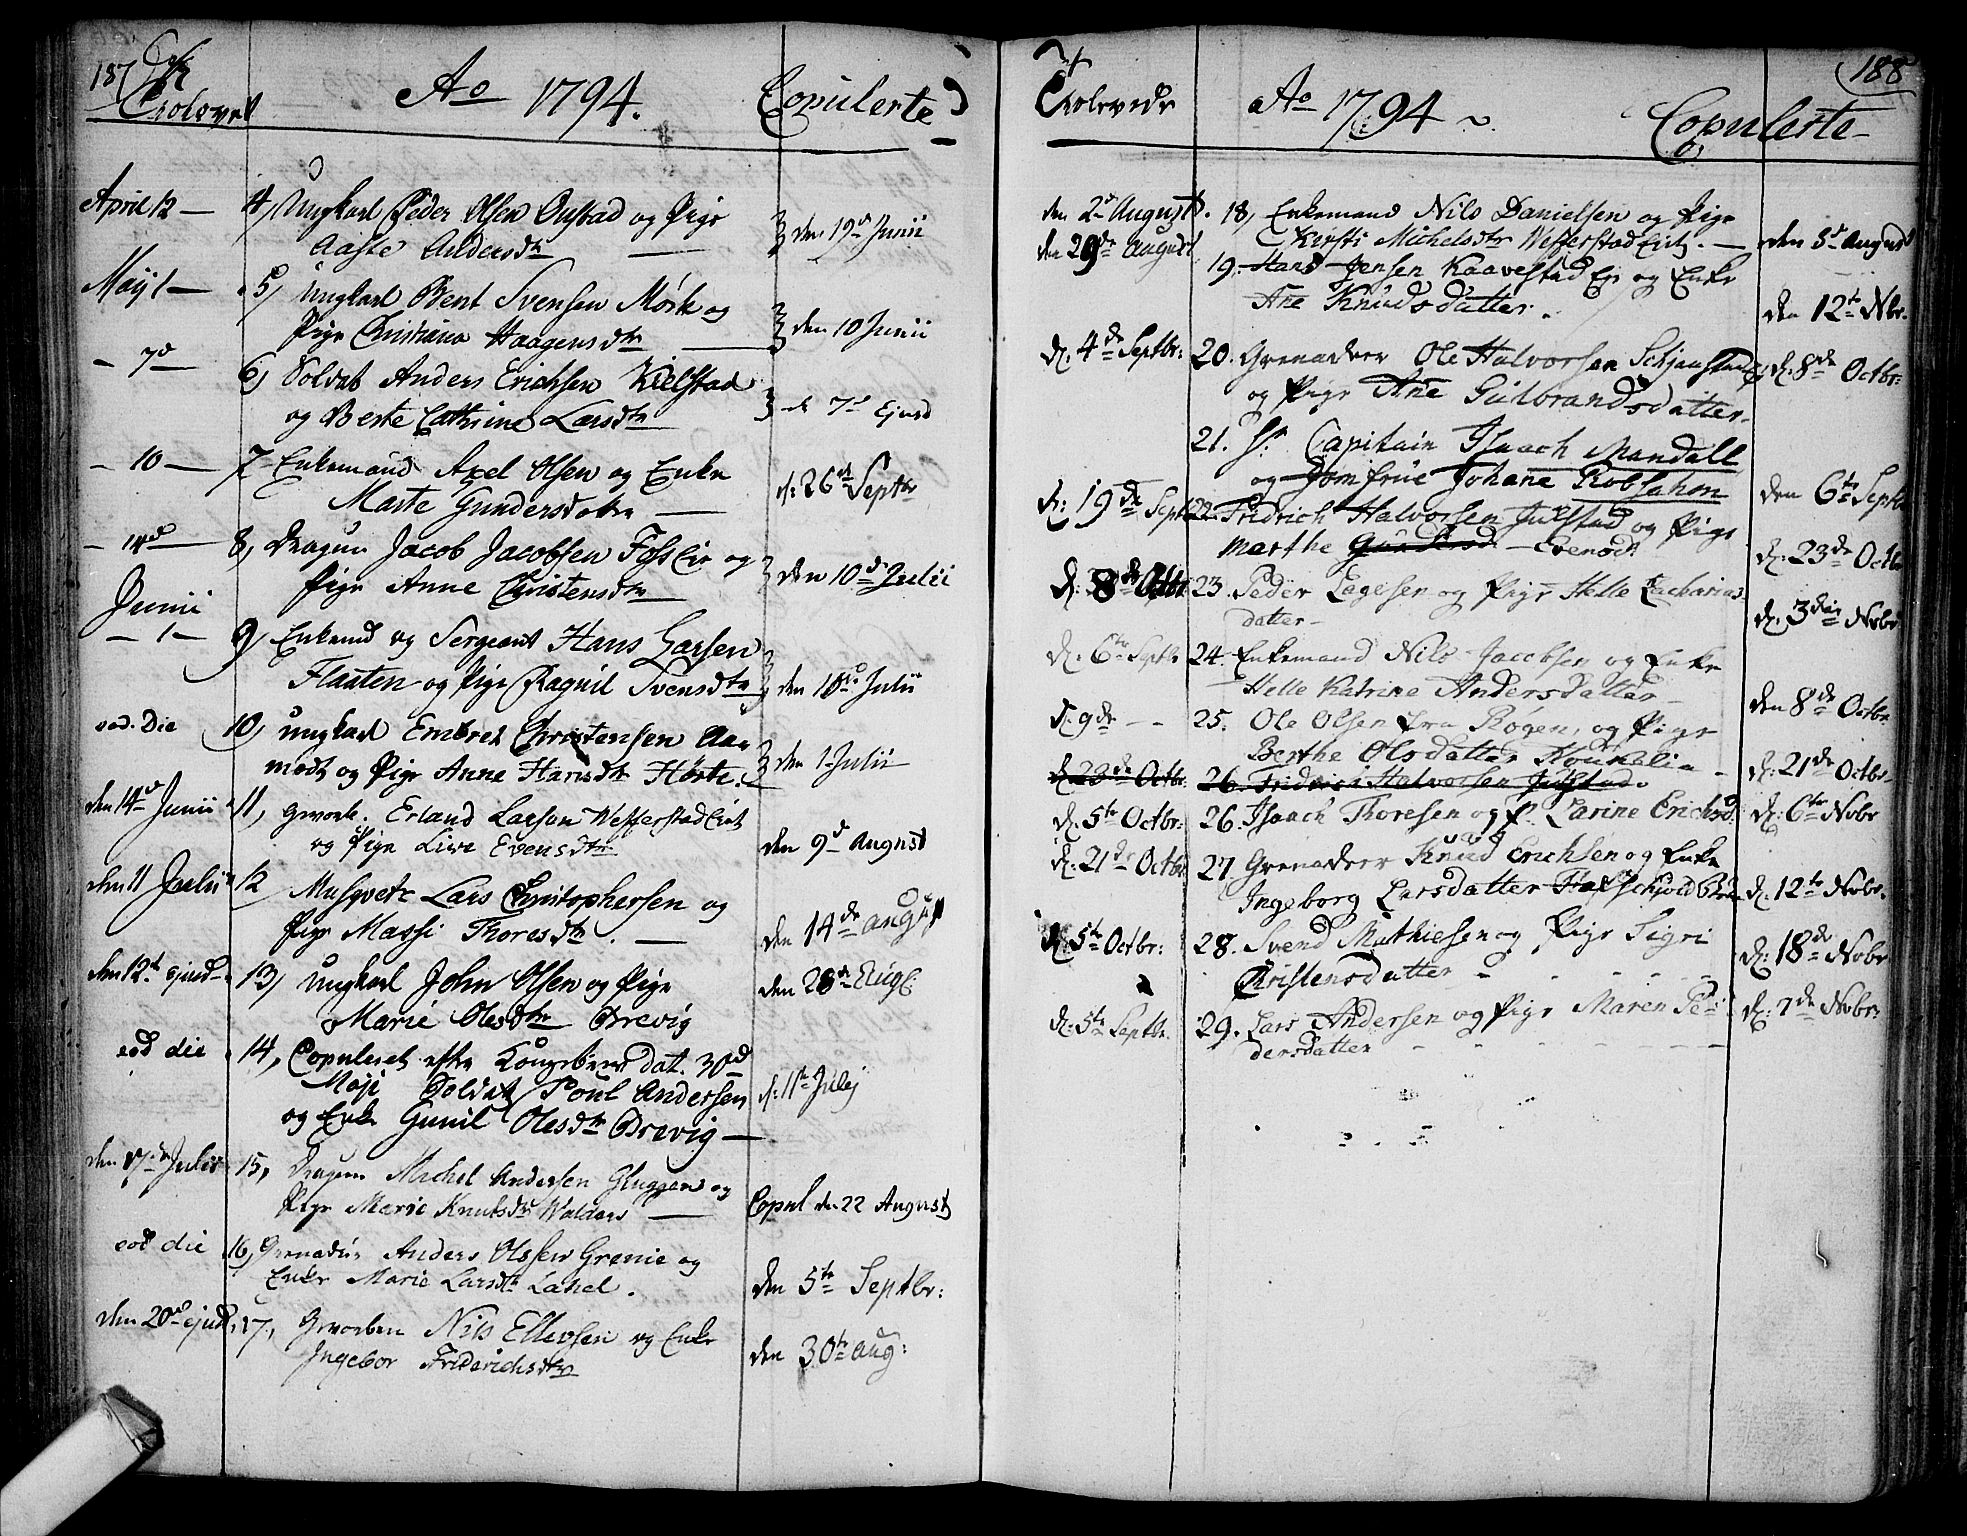 187
Trolovet Ao 1794. Copulerte
April 12 — 4, Ungkarl Peder Olsen Onstad og Pige
Aaste Andersdtr — den 19d Junii
Maij 1 — 5, Ungkarl Bent Svensen Mørk og
Pige Christiana Haagensdtr — den 10 Junii
— 7d — 6, Soldat Anders Erichsen Kielstad
og Berte Cathrine Larsdtr — d 7d Ejusd
— 10 — 7 Enkemand Axel Olsen og Enke
Marte Gundersdotter — d: 26d Septbr
— 14d — 8, Dragun Jacob Jacobsen Foss Eie og
Pige Anne Christensdtr — den 10d Julii
Junii
— 1 — 9, Enkemd og Sergeant Hans Larsen
Flaaten og Pige Ragnil Svensdtr den 10de Julii
eod. die 10, Ungkarl Embret Christensen Aa-
modt og Pige Anne Hansdtr Hørte. — den 1 Julii
den 14d Junii 11, Gevorb. Erland Larsen Wefferstad Eiet
og Pige Live Evensdtr den 9d August
den 11 Julii 12 Musqvetr Lars Christophersen og
Pige Massi Thoresdtr. — den 14de august
den 12t ejusd 13, Ungkarl John Olsen og Pige
Marie Olesdtr Drevig den 28d Aug:
eod die 14, Copuleret efter Kongebrev dat. 30d
Maji Soldat Poul Andersen
og Enke Gunil Olesdtr Drevig — d: 11te Julij
den 17de Julii 15, Dragun Michel Andersen Gluggen og
Pige Marie Knutsdtr Walders — Copul den 22 August
eod die 16, Grenadier Anders Olssen Grenie og
Enke Marie Larsdtr Lahel. den 5te Septbr:
den 20d ejusd 17, Gevorben Nils Ellevsen og Enke
Ingebor Friderichsdtr den 30te aug:
188
Trolovede Ao 1794 Copulerte
den 2d August 18, Enkemand Nils Danielsen og Pige
Kirsti Michelsdtr Wefferstad Eiet. — den 5d August
den 29de August 19. Hans Jensen Kaavestad Eie og Enke
Ane Knudsdatter. den 12te Nbr.
d: 4de Septbr: 20. Grenadeer Ole Halvorsen
og Pige Ane Gulbrandsdatter. d: 8de Octbr:
21. Hr. Capitain Isaach Mandall
og Jomfrue Johane Robsahm den 6te Septbr
d: 19de Sept 22. Fridrich Halvorsen Julstad og Pige
Marthe Gundersd — Evensdtr d: 23de Octbr
d: 8de Octbr 23. Peder Lagesen og Pige Helle Zacharias
datter — d: 3die Nobr
d: 6te Septbr 24. Enkemand Nils Jacobsen og Enke
Helle Katrine Andersdatter — den 8de Octbr
d: 9de — 25. Ole Olsen fra Røgen, og Pige
Berthe Olsdatter — d: 21de Octbr
d: 23de Octbr. 26. Friderich Halvorsen Julstad.
d: 5te Octbr: 26. Isaach Thoresen og P. Karine Erichsd. d: 6te Nobr
d: 21de Octbr 27. Grenadeer Knud Erichsen og Enke
Ingeborg Larsdatter d: 12te Nobr.
d: 5te Octbr: 28. Svend Mathiesen og Pige Sigri
Christensdatter — d: 18de Nobr
d: 5te Septbr. 29. Lars Andersen og Pige Maren Pe-
dersdatter — d: 7de Nobr: